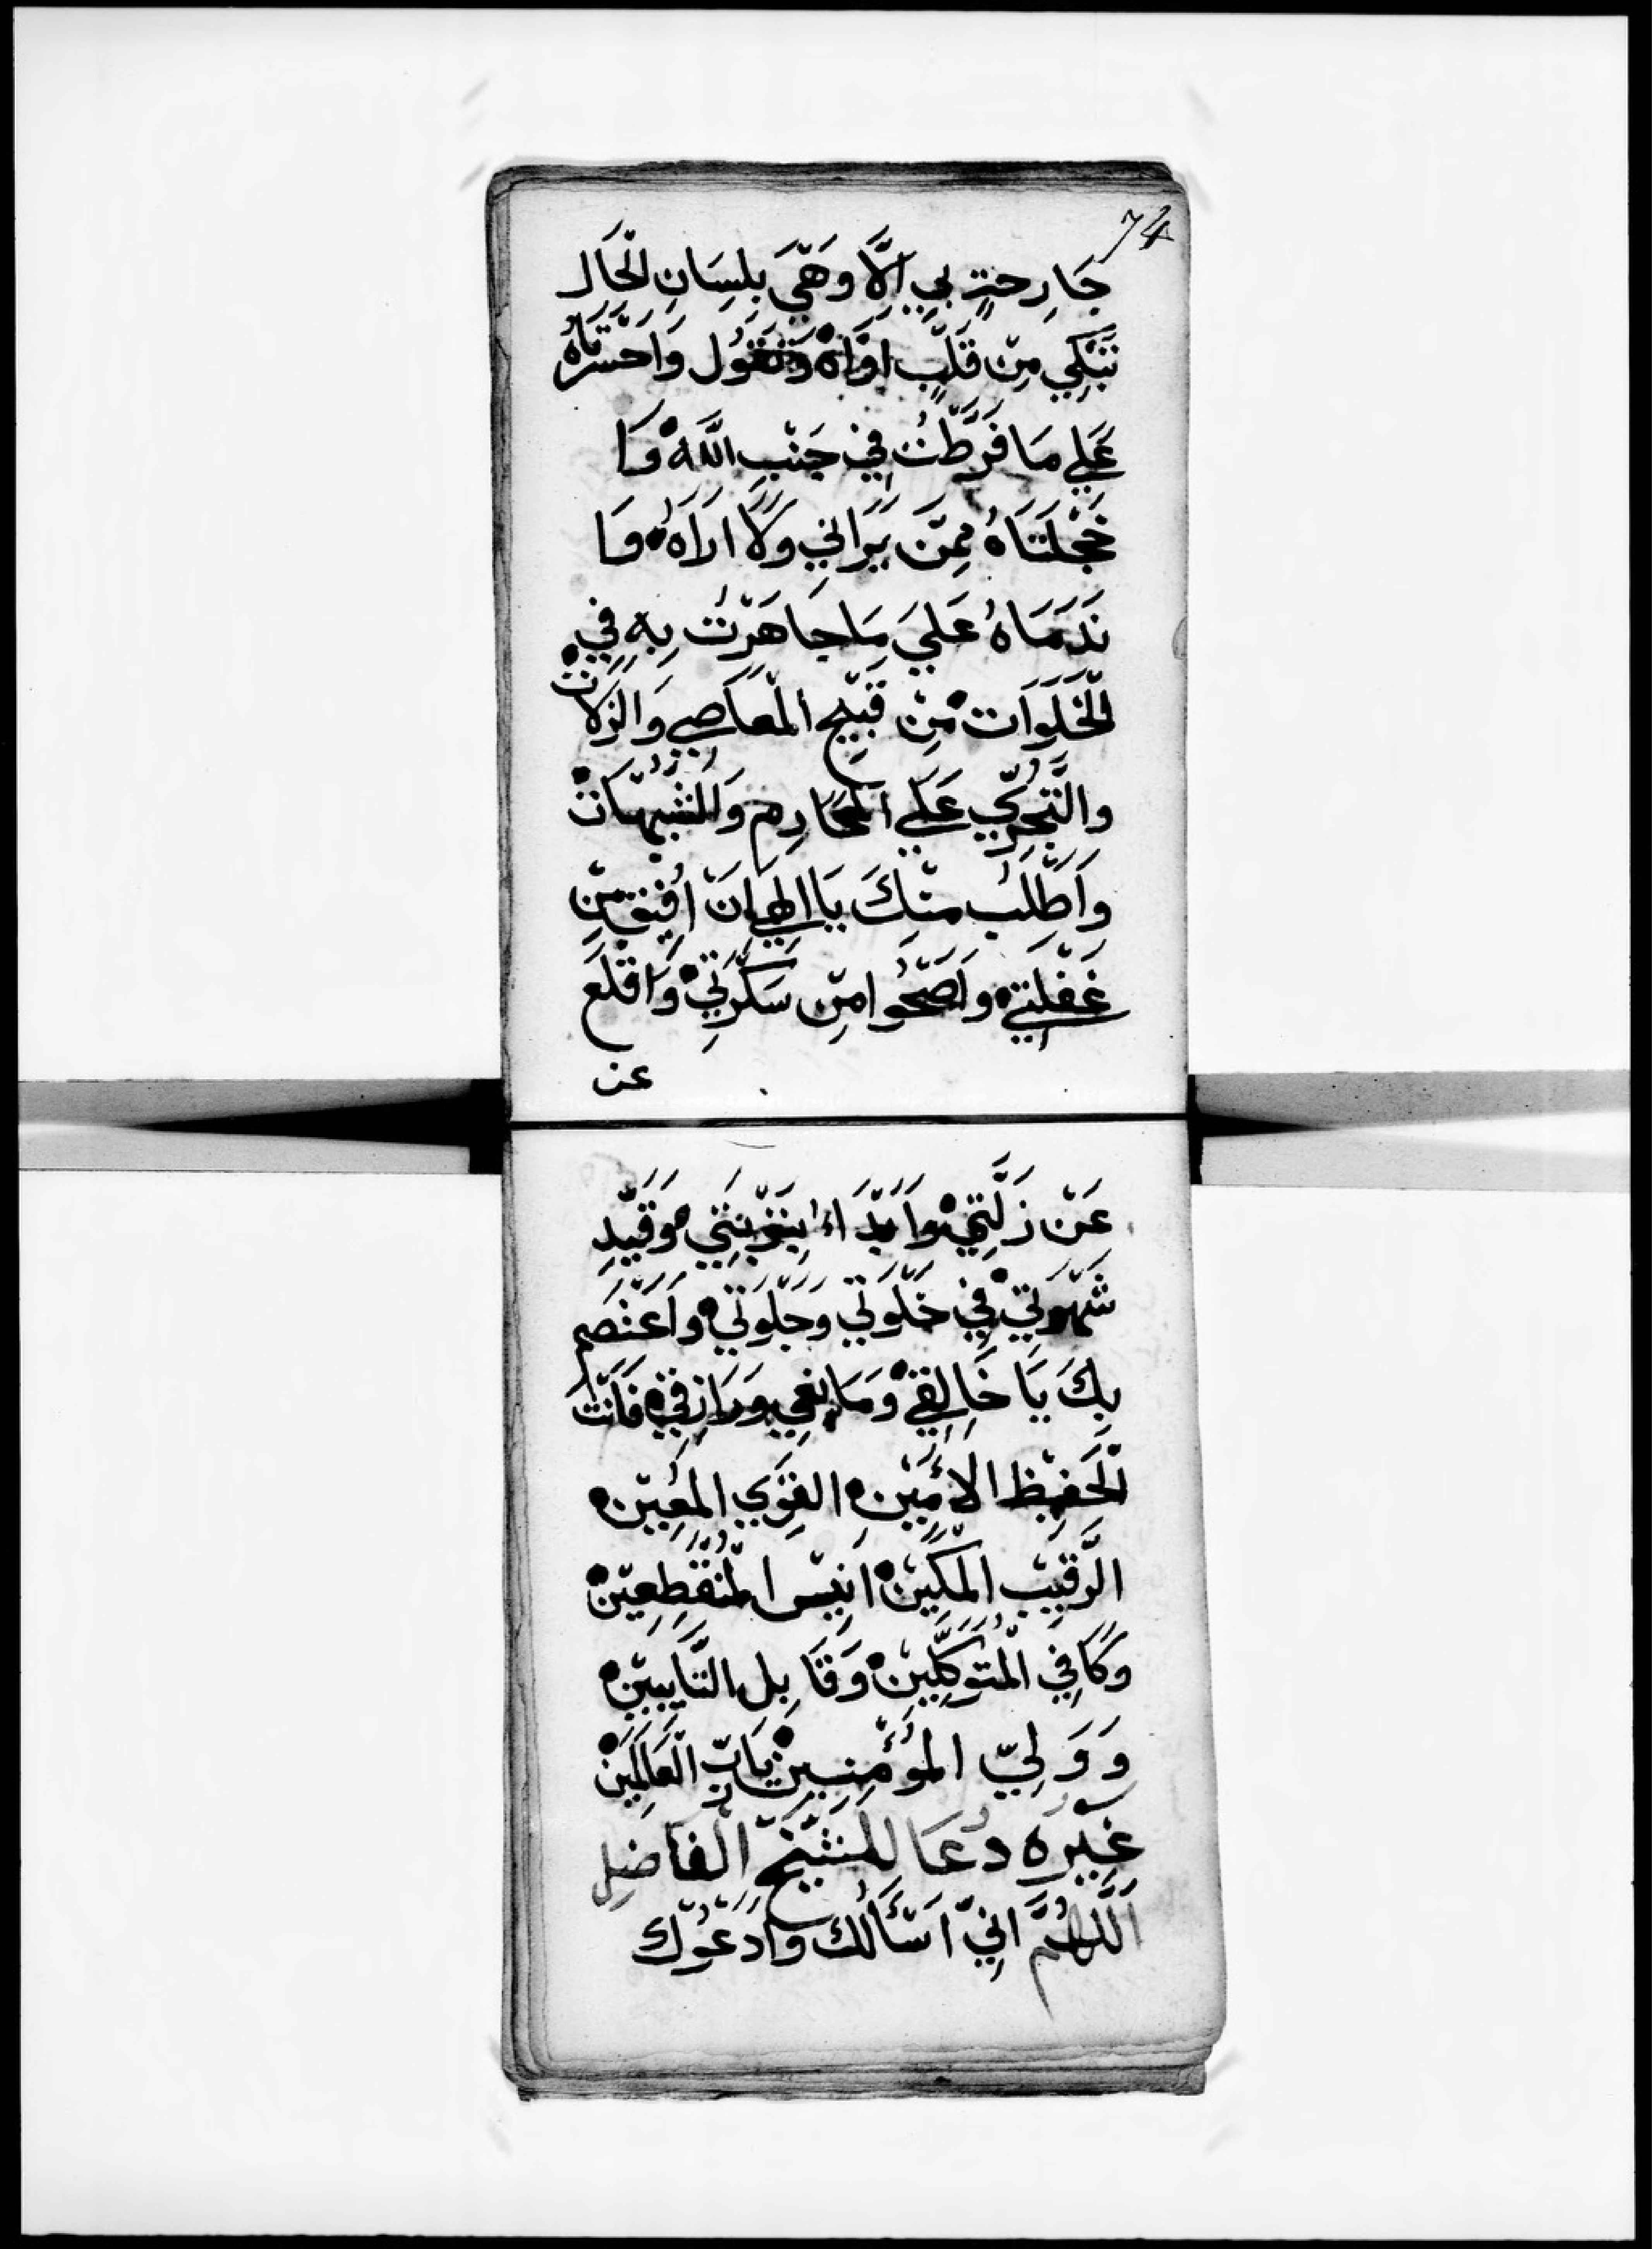 74
جَارِحتٍ بِي اِلَّا وَهْيَ بِلِسَانِ الْحَال
تَبْكِي مِنْ قَلْبٍ اوَّاهْ وَتَقُول وَاحَسْرَتَاهْ
عَلي مَا فَرَّطْتُ فِي جَنْبِ اللَّهْ وَا
خَجْلَتَاهُ مِمَّنْ يَرَانِي وَلَا ارَاهُ وَا
نَدَمَاهُ عَلَيَ مَا جَاهَرْتُ بِهِ فِي
الْخَلَوَات مِنْ قَبِيْحِ الْمَعَاصِي وَالزَّلَاتْ
وَالتَّجَرِّي عَلَي الْمَحَارِم وَالشُّبُهَاتْ
وَاَطْلُبُ مِنْكَ يَا اِلهِي اَنْ اُفِيْقَ مِنْ
غَفْلَتِي وَاَصْحُوا مِنْ سَكْرَتِيْ وَاَقْلَعَ
عن
عَنْ زَلَّتِيْ وَاَبْدَاءُ بِتَوْبَتِي وَقَيْدِ
شَهْوَتِيْ فِي خَلْوَتِي وَجَلْوَتِي وَاَعْتَصِم
بِكَ يَا خَالِقِيْ وَمَانِعِي وَرَازِقِي فَاَنْتَ
الْحَفِيْظ الْأَمِيْن القَوِي المُعِيْن
الرَّقِيْب الْمَكِيْن اَنِيْس الْمُنْقَطِعِيْنْ
وَكَافِي الْمُتَوَكِّلِيْنْ وَقَابِل التَّايِبِيْن
وَوَلِيّ الْمؤْمِنِيْنْ يَارَبّ الْعَالَمِيْنْ
غيره دُعَا للشَّيْخ الْفَاضِلِ
اَللَّهُمَّ اِنِّي اَسْأَلُك وَاَدْعُوْك